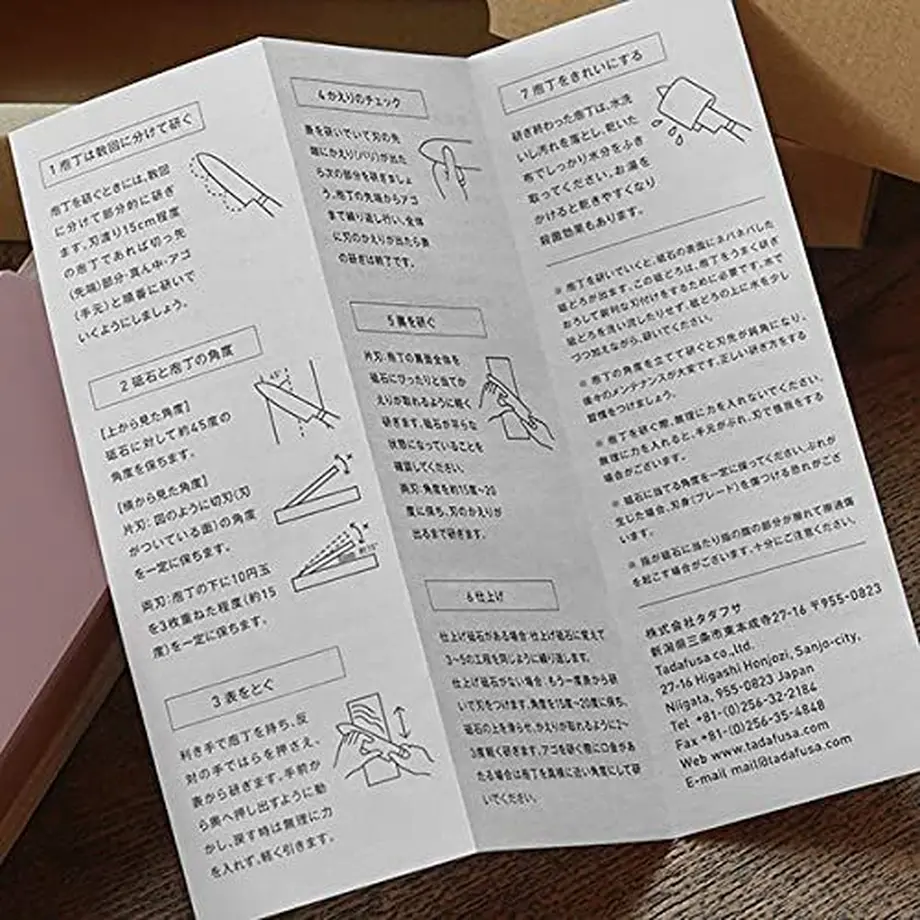 1 庖丁は数回に分けて研ぐ
庖丁を研ぐときには、数回
に分けて部分的に研ぎ
ます。刃渡り15cm程度
の庖丁であれば切っ先
(先端)部分・真ん中・アゴ
(手元)と順番に研いで
いくようにしましょう。
2 砥石と庖丁の角度
[上から見た角度]
砥石に対して約45度の
角度を保ちます。
45°
[横から見た角度]
片刃:図のように切刃(刃
がついている面)の角度
を一定に保ちます。
両刃:庖丁の下に10円玉
を3枚重ねた程度(約15
度)を一定に保ちます。
約15°
3 表をとぐ
利き手で庖丁を持ち、反
対の手ではらを押さえ、
表から研ぎます。手前か
ら奥へ押し出すように動
かし、戻す時は無理に力
を入れず、軽く引きます。
4 かえりのチェック
表を研いでいて刃の先
端にかえり(バリ)が出た
ら次の部分を研ぎましょ
う。庖丁の先端からアゴ
まで繰り返し行い、全体
に刃のかえりが出たら表
の研ぎは終了です。
5 裏を研ぐ
片刃:庖丁の裏面全体を
砥石にぴったりと当てか
えりが取れるように軽く
研ぎます。砥石が平らな
状態になっていることを
確認してください。
両刃:角度を約15度~20
度に保ち、刃のかえりが
出るまで研ぎます。
6 仕上げ
仕上げ砥石がある場合:仕上げ砥石に変えて
3~5の工程を同じように繰り返します。
仕上げ砥石がない場合:もう一度表から研
いで刃をつけます。角度を15度~20度に保ち、
砥石の上を滑らせ、かえりが取れるように2~
3度軽く研ぎます。アゴを研ぐ際に口金があ
たる場合は庖丁を真横に近い角度にして研
いでください。
7 庖丁をきれいにする
研ぎ終わった庖丁は、水洗
いし汚れを落とし、乾いた
布でしっかり水分をふき
取ってください。お湯を
かけると乾きやすくなり
殺菌効果もあります。
※ 庖丁を研いでいくと、砥石の表面にネバネバした
砥どろが出ます。この砥どろは、庖丁をうまく研ぎ
おろして鋭利な刃付けをするために必要です。水で
砥どろを洗い流したりせず、砥どろの上に水を少し
づつ加えながら、研いでください。
※ 庖丁の角度を立てて研ぐと刃先が鈍角になり、
後々のメンテナンスが大変です。正しい研ぎ方をする
習慣をつけましょう。
※ 庖丁を研ぐ際、無理に力を入れないでください。
無理に力を入れると、手元がぶれ、刃で怪我をする
場合がございます。
※ 砥石に当てる角度を一定に保ってください。ぶれが
生じた場合、刃身(ブレード)を傷つける恐れがござ
います。
※ 指が砥石に当たり指の腹の部分が擦れて擦過傷
を起こす場合がございます。十分にご注意ください。
株式会社タダフサ
新潟県三条市東本成寺27-16 〒955-0823
Tadafusa co.,ltd.
27-16 Higashi Honjozi, Sanjo-city,
Niigata, 955-0823 Japan
Tel +81-(0)256-32-2184
Fax +81-(0)256-35-4848
Web www.tadafusa.com
E-mail mail@tadafusa.com